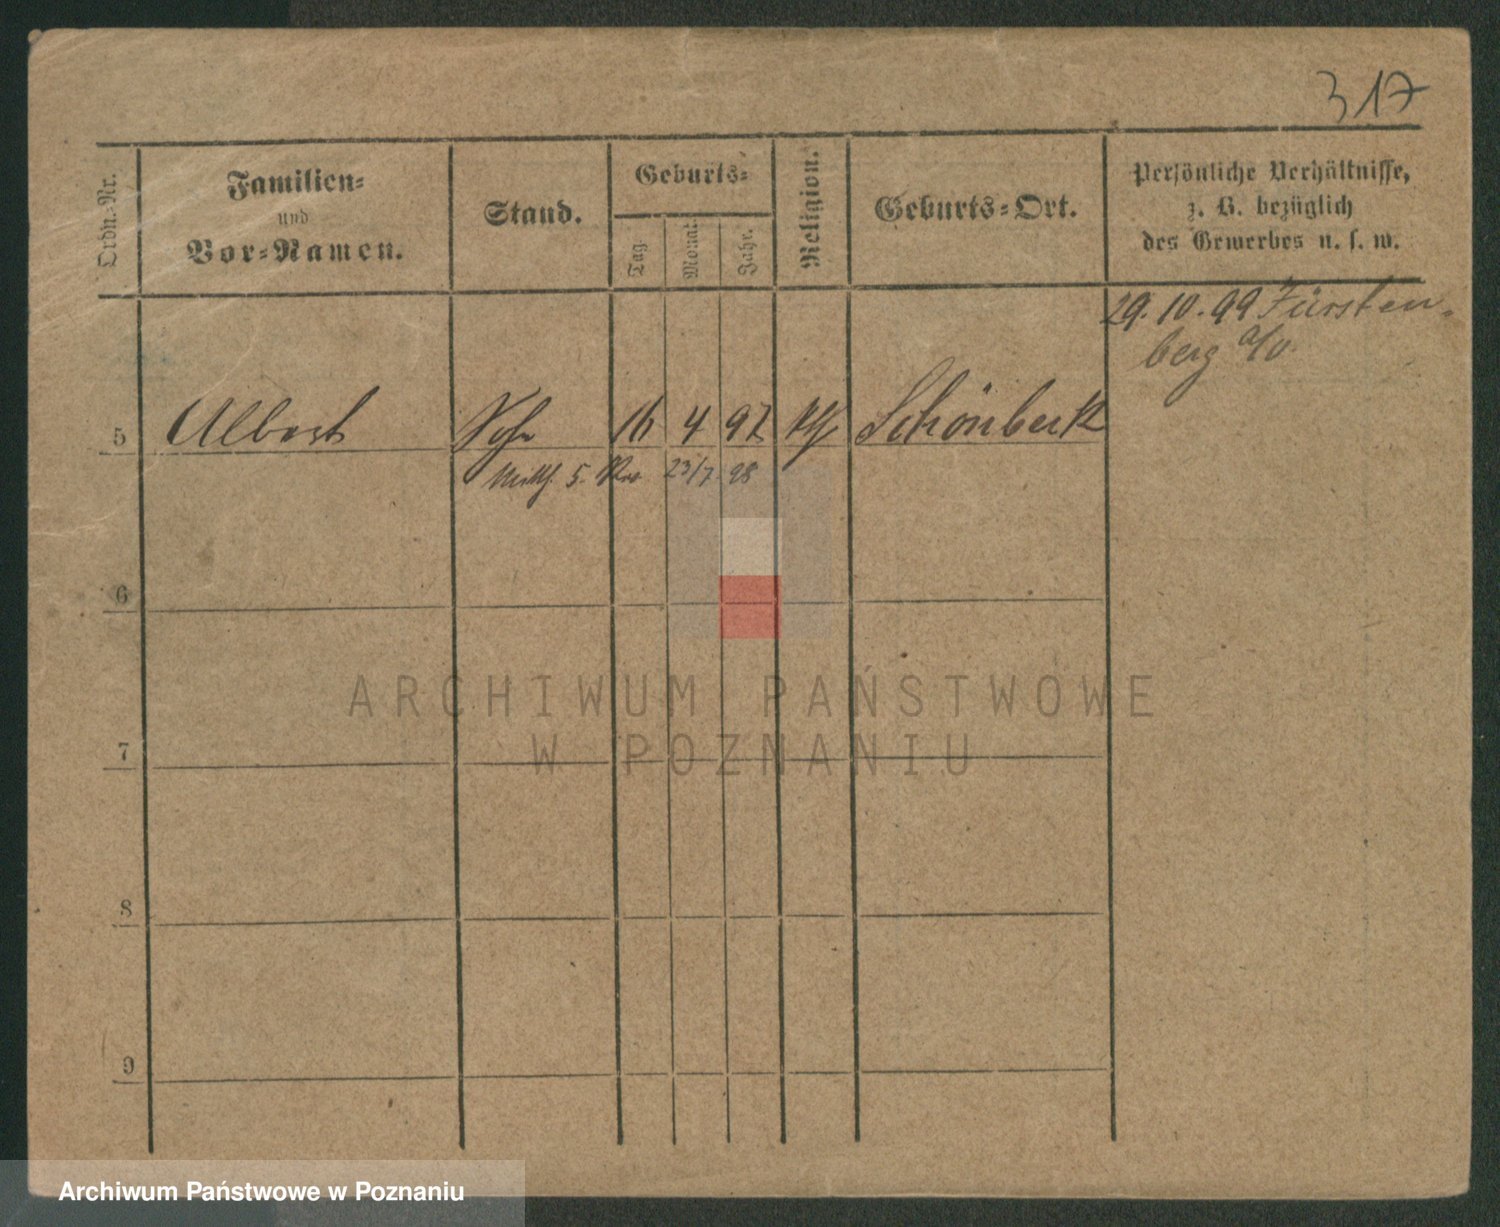 317
Ordn.-Nr.
Familien-
und
Vor-Namen.
Stand.
Geburts-
Tag.
Monat.
Jahr.
Religion.
Geburts-Ort.
Persönliche Verhältnisse,
z. B. bezüglich
des Gewerbes u. s. w.
29.10.99 Fürsten-
berg a/O.
5 Albert Sohn 16 4 97 Schönbeck
5. 23/7 98
6
7
8
9
ARCHIWUM PAŃSTWOWE
W POZNANIU
Archiwum Państwowe w Poznaniu